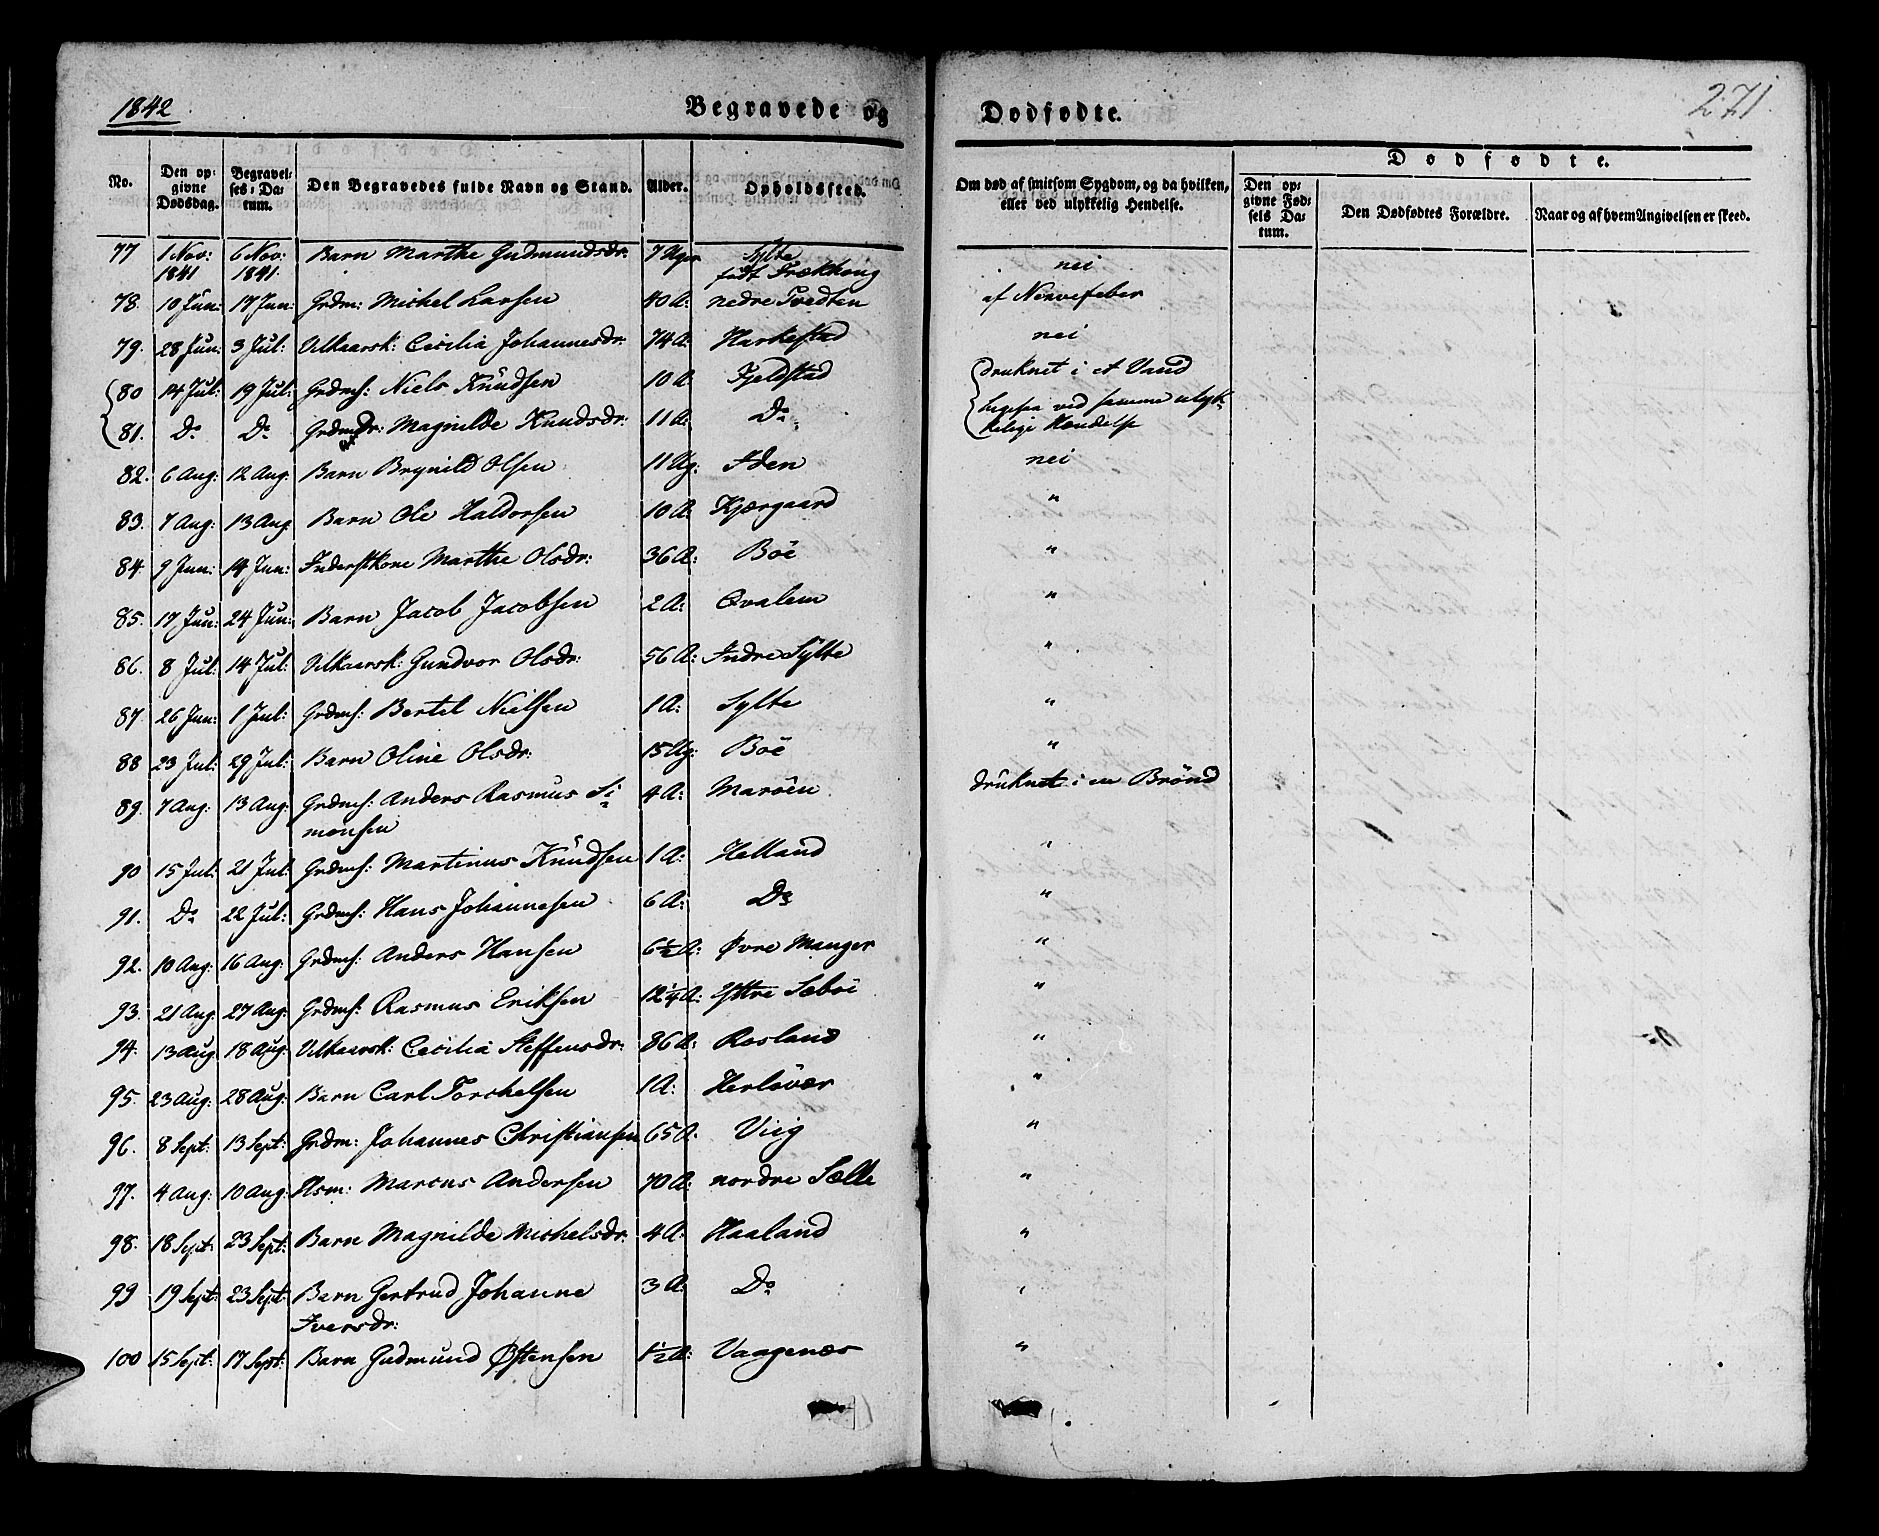 1842
Begravede og
Dødfødte.
271
No.
Den opgivne Dødsdag.
Begravelses-Datum.
Den Begravedes fulde Navn og Stand.
Alder.
Opholdssted.
Om død af smitsom Sygdom, og da hvilken, eller ved ulykkelig Hendelse.
Dødfødte.
Den opgivne Fødsels Datum.
Den Dødfødtes Forældre.
Naar og af hvem Angivelsen er skeed.
77 1 Nov: 1841 6 Nov: 1841. Barn Marthe Gudmundsdr. 7 Uger Sylte født Trækhong nei
78. 10 Jun: 17 Jun: Grdm: Michel Larsen 40 A: nedre Tvedten af Nervefeber
79. 28 Jun: 3 Jul: Vilkaarsk: Cecilia Johannesdr. 74 A: Harkestad nei
80 14 Jul: 19 Jul: Grdms: Niels Knudsen 10 A Fjeldstad druknet i et Vand
81. Do Do Grdmdr: Magnilde Knudsdr: 11 A: Do ligesaa ved samme ulyk-
kelige Hændelse
82. 6 Aug: 12 Aug: Barn Brynild Olsen 11 Ug: Iden nei
83. 7 Aug: 13 Aug Barn Ole Haldorsen 10 A: Kjærgaard "
84. 9 Jun: 14 Jun: Inderstkone Marthe Olsdr: 36 A: Böe "
85. 17 Jun: 24 Jun: Barn Jacob Jacobsen 2 A: Qvalem "
86. 8 Jul: 14 Jul: Vilkaarsk: Gundvor Olsdr: 56 A: Indre Sylte "
87 26 Jun: 1 Jul: Grdms: Bertel Nielsen 1 A: Sylte "
88 23 Jul: 29 Jul: Barn Oline Olsdr: 15 Ug: Böe "
89. 7 Aug: 13 Aug: Grdms: Anders Rasmus Si- 4 A: Maröen druknet i en Brönd
monsen
90 15 Jul: 21 Jul: Grdms: Martinus Knudsen 1 A: Helland "
91. Do 22 Jul: Grdms: Hans Johannesen 6 A: Do "
92. 10 Aug: 16 Aug: Grdms: Anders Hansen 6½ A: Øvre Manger "
93. 21 Aug 27 Aug: Grdms: Rasmus Eriksen 12¼ A: Yttre Sæböe "
94. 13 Aug 18 Aug: Vilkaarsk: Cecilia Steffensdr: 86 A: Rosland "
95. 23 Aug: 28 Aug: Barn Carl Torchelsen 1 A: Herlövær "
96. 8 Sept: 13 Sept: Grdm: Johannes Christiansen 65 A: Viig "
97. 4 Aug: 10 Aug: Hsm: Marcus Andersen 70 A: nordre Sælle "
98. 18 Sept: 23 Sept: Barn Magnilde Michelsdr: 4 A: Haaland "
99 19 Sept: 23 Sept: Barn Gertrud Johanne 3 A: Do "
Iversdr:
100 15 Sept: 17 Sept: Barn Gudmund Østensen 1½ A: Vaagenæs "